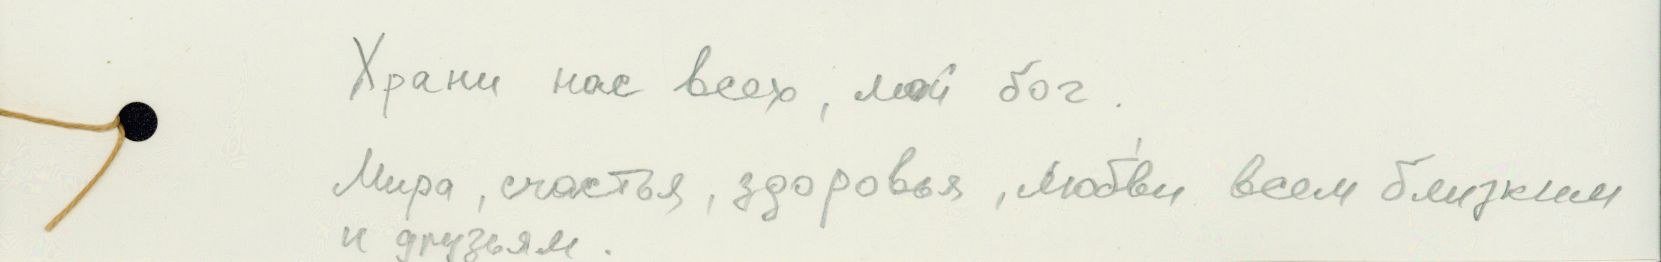 Храни нас всех, мой бог.
Мира, счастья, здоровья, любви всем близким
и друзьям.